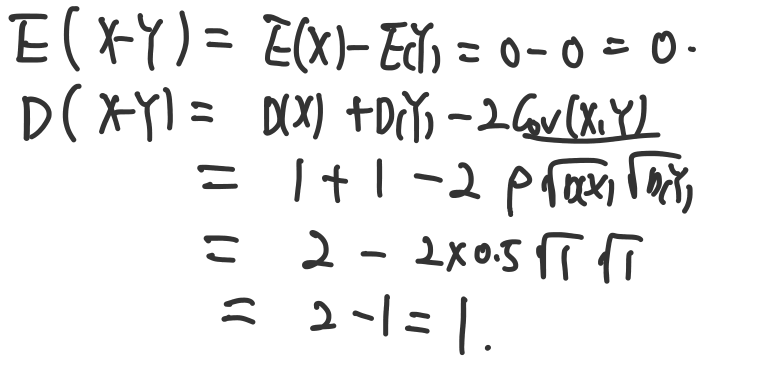 E(X-Y) = E(X)-E(Y) = 0-0 = 0.
D(X-Y) = D(X)+D(Y)-2Cov(X,Y)
= 1+1-2ρ√D(X)√D(Y)
= 2-2×0.5√1√1
= 2-1=1.